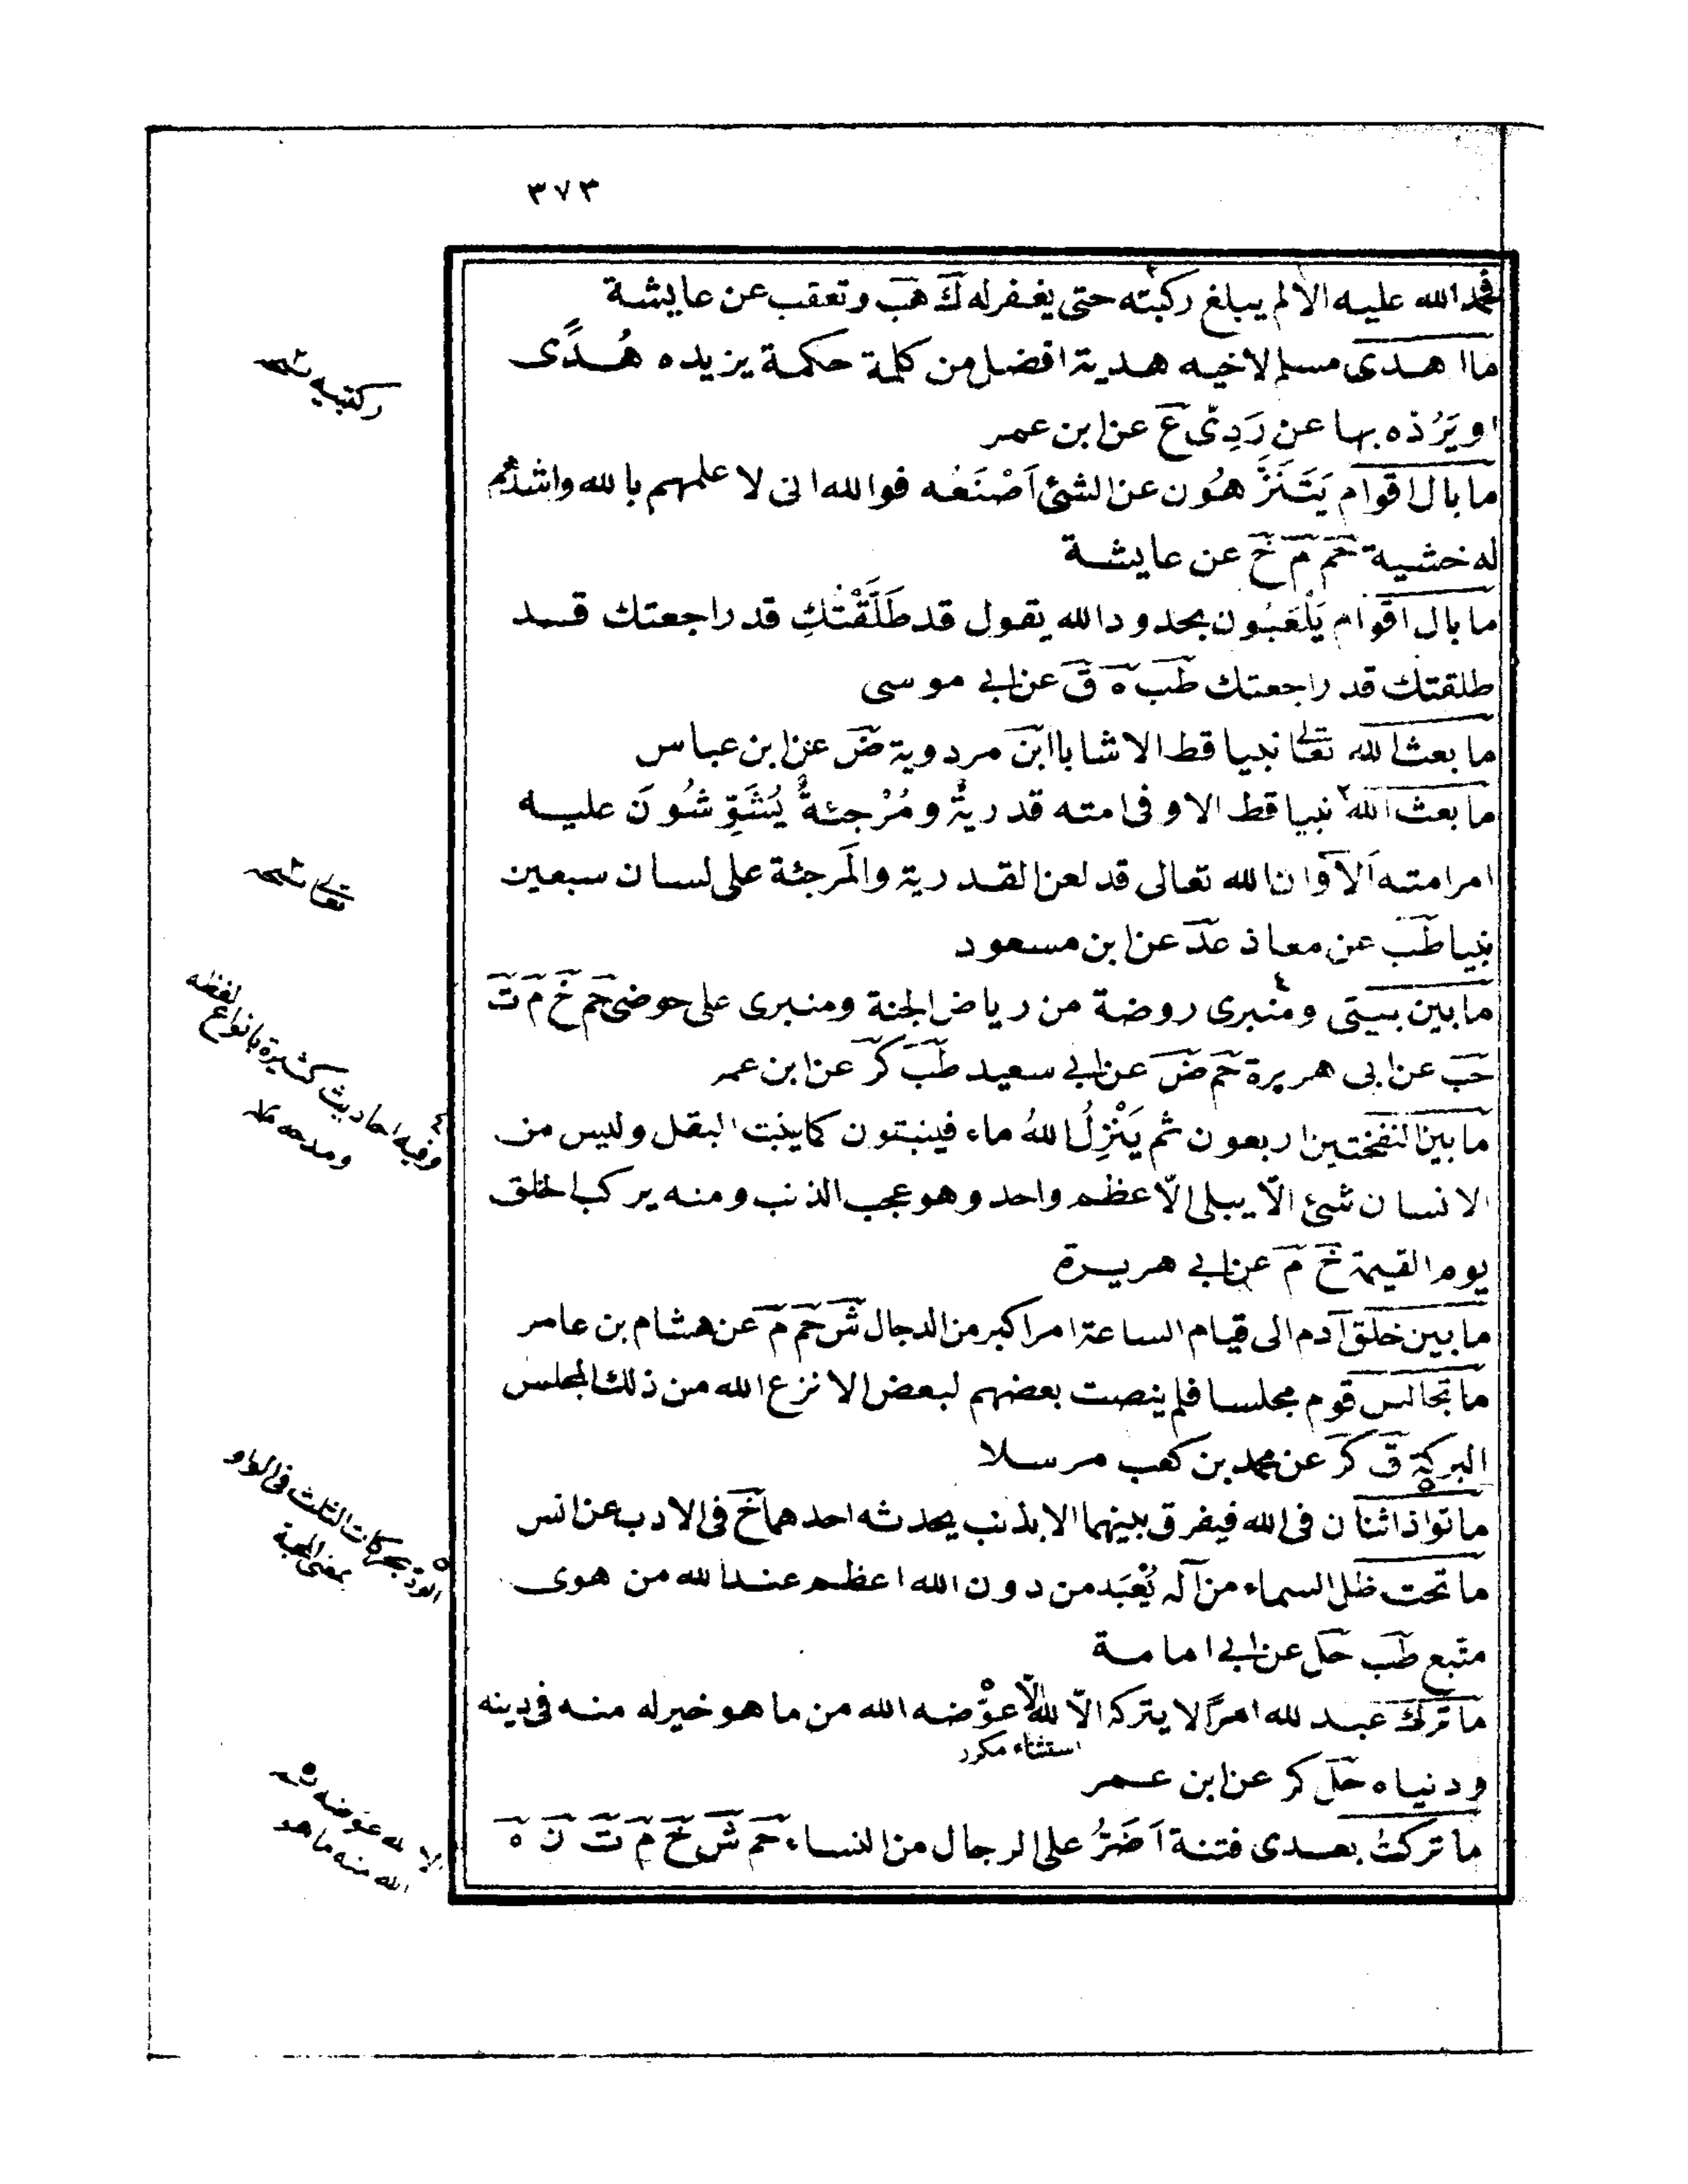 ٣٧٣
فحمد الله عليه الا لم يبلغ ركبته حتى يغفر له ك هب وتعقب عن عايشة
ما اهدى مسلم لاخيه هدية افضل من كلمة حكمة يزيده هُدًى
او يَرُدّه بها عن رَدِىّ ع عن ابن عمر
ما بال اقوام يَتَنَزَّهُون عن الشئ اَصْنَعُه فوالله انى لا علمهم بالله واشدّهم
له خشية حم م خ عن عايشة
ما بال اقوام يَلْعَبُون بحدود الله يقول قد طَلَّقْتُكِ قد راجعتك قد
طلقتك قد راجعتك طب ه ق عن ابى موسى
ما بعث الله تعالى نبيا قط الا شابا ابن مردوية ض عن ابن عباس
ما بعث الله ٢ نبيا قط الا وفى امته قدريةٌ ومُرْجئةٌ يُشَوِّشُونَ عليه
امر امته اَلا وان الله تعالى قد لعن القدرية والمرجئة على لسان سبعين
نبيا طب عن معاذ عد عن ابن مسعود
ما بين بيتى ومنبرى ٤ روضة من رياض الجنة ومنبرى على حوضى حم خ م ت
حب عن ابى هريرة حم ض عن ابى سعيد طب كر عن ابن عمر
ما بين النفختين اربعون ثم يَنْزِلُ اللهُ ماء فينبتون كما ينبت البقل وليس من
الانسان شئ الّا يبلى الّا عظم واحد وهو عجب الذنب ومنه يركب الخلق
يوم القيمة خ م عن ابى هريرة
ما بين خلق آدم الى قيام الساعة امر اكبر من الدجال ش حم م عن هشام بن عامر
ما تجالس قوم مجلسا فلم ينصت بعضهم لبعض الا نزع الله من ذلك المجلس
البركة ق كر عن محمد بن كعب مرسلا
ما تواد اثنان فى الله فيفرق بينهما الا بذنب يحدثه احدهما خ فى الادب عن انس
ما تحت ظل السماء من آله يُعْبَد من دون الله اعظم عند الله من هوى
متّبع طب حل عن ابى امامة
ما ترك عبد لله امرًا لا يتركه الّا لله الّا عوّضه الله من ما هو خير له منه فى دينه
استثناء مكرر
ودنياه حل كر عن ابن عمر
ما تركتُ بعدى فتنة اَضَرُّ على الرجال من النساء حم ش خ م ت ن ه
ركبتيه نسخه
تعالى نسخه
٤ وفيه احاديث كثيرة بانواع لفظه
ومدحه
٥ الود بحركات الثلث فى الواو
بمعنى المحبة
الا لله عوضه نسخه
الله منه ما هو